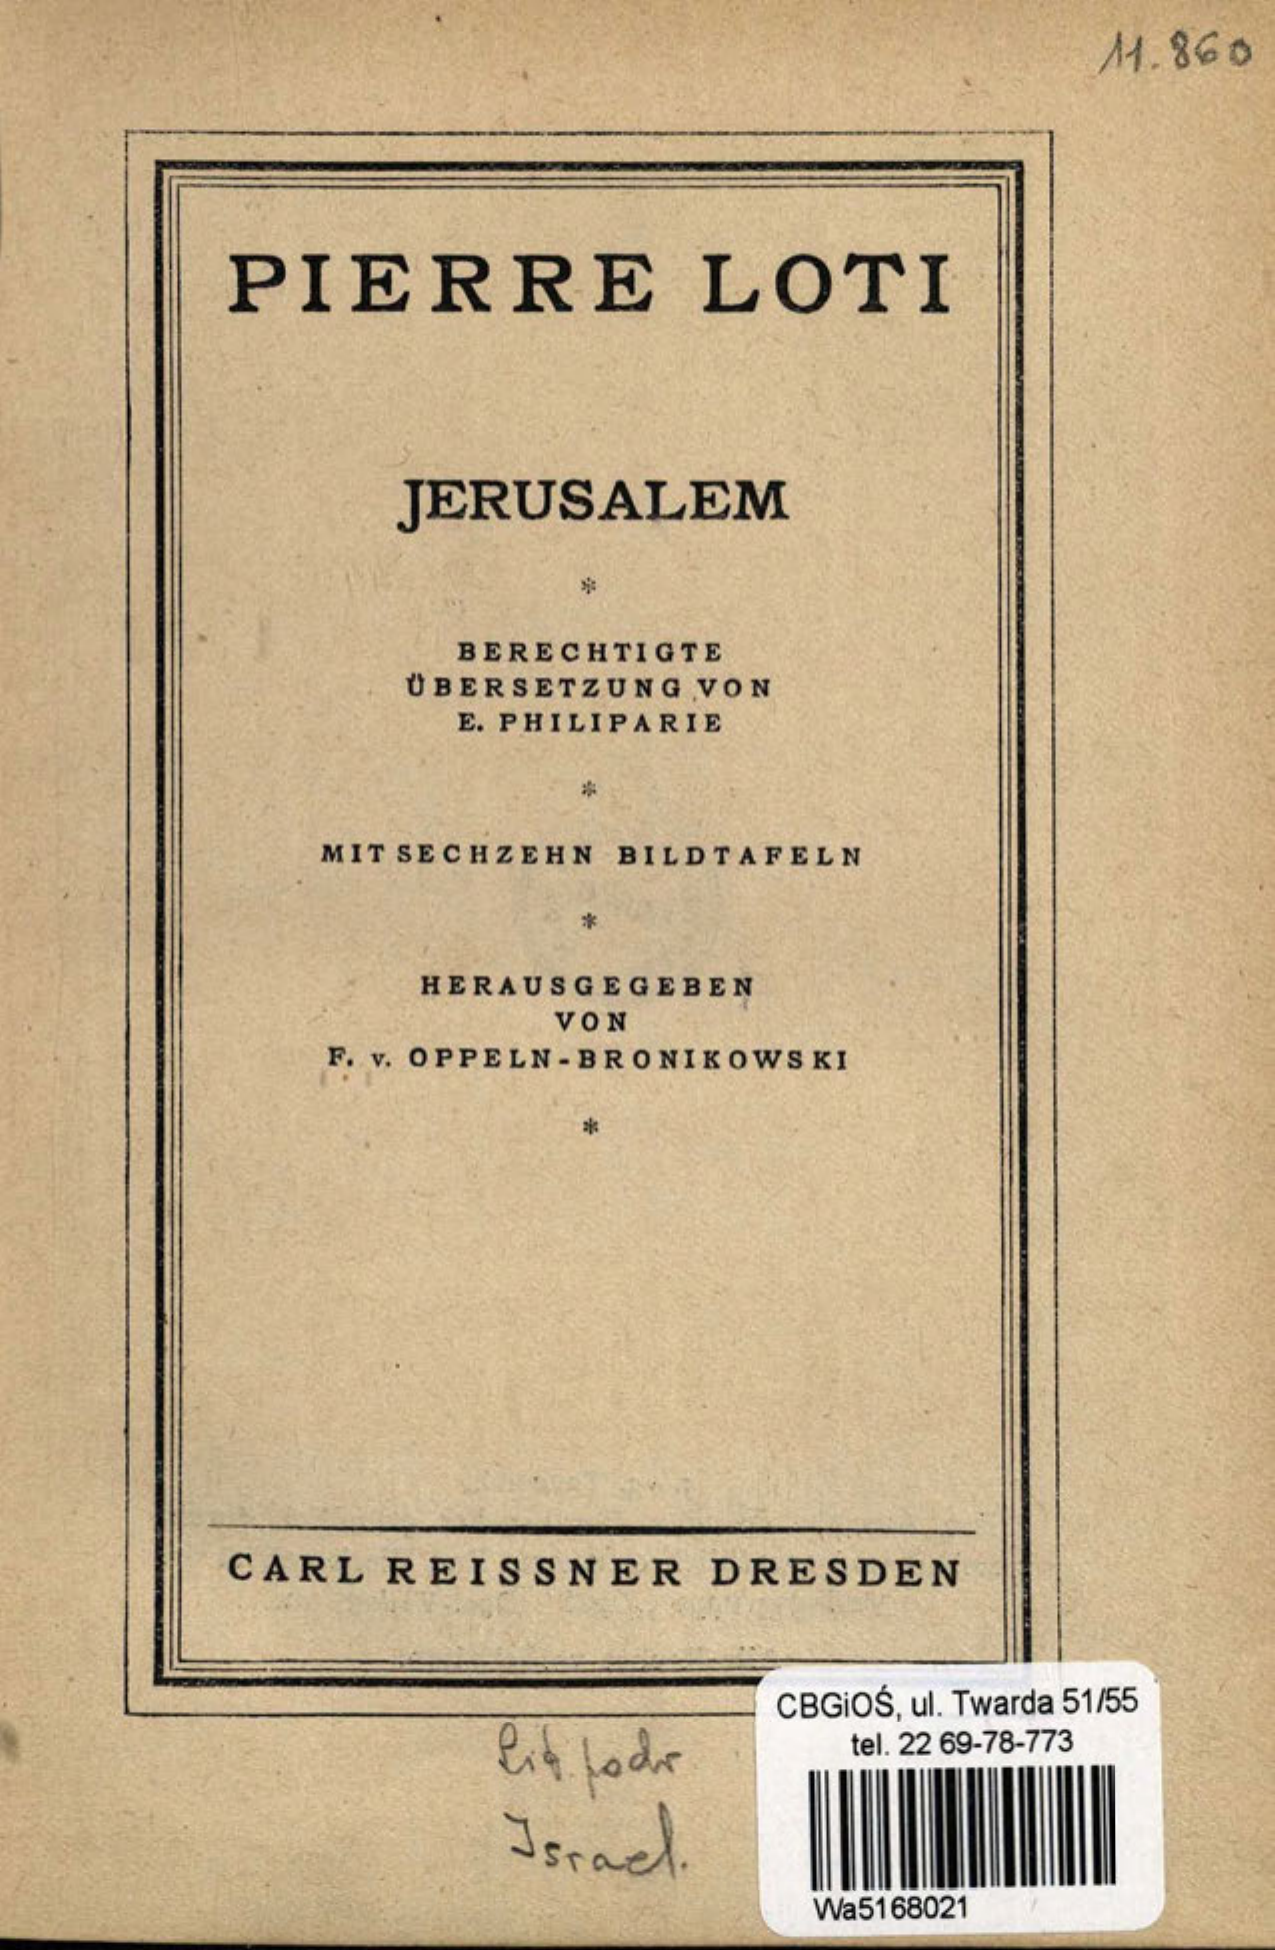 11.860
PIERRE LOTI
JERUSALEM
*
BERECHTIGTE
ÜBERSETZUNG VON
E. PHILIPARIE
*
MIT SECHZEHN BILDTAFELN
*
HERAUSGEGEBEN
VON
F. v. OPPELN-BRONIKOWSKI
*
CARL REISSNER DRESDEN
CBGiOŚ, ul. Twarda 51/55
tel. 22 69-78-773
Wa5168021
Lit. podr
Israel.